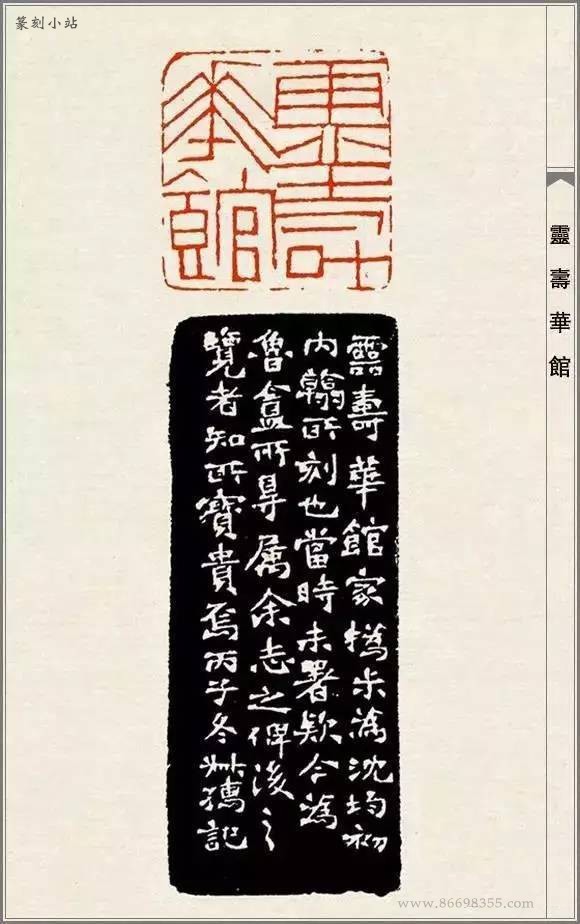 篆刻小站
靈壽
華館
靈壽華館
靈壽華館家撝尗為沈均初
內翰所刻也當時未署款今為
魯盦所得屬余志之俾後之
覽者知所寶貴焉丙子冬尗孺記
www.86698355.com